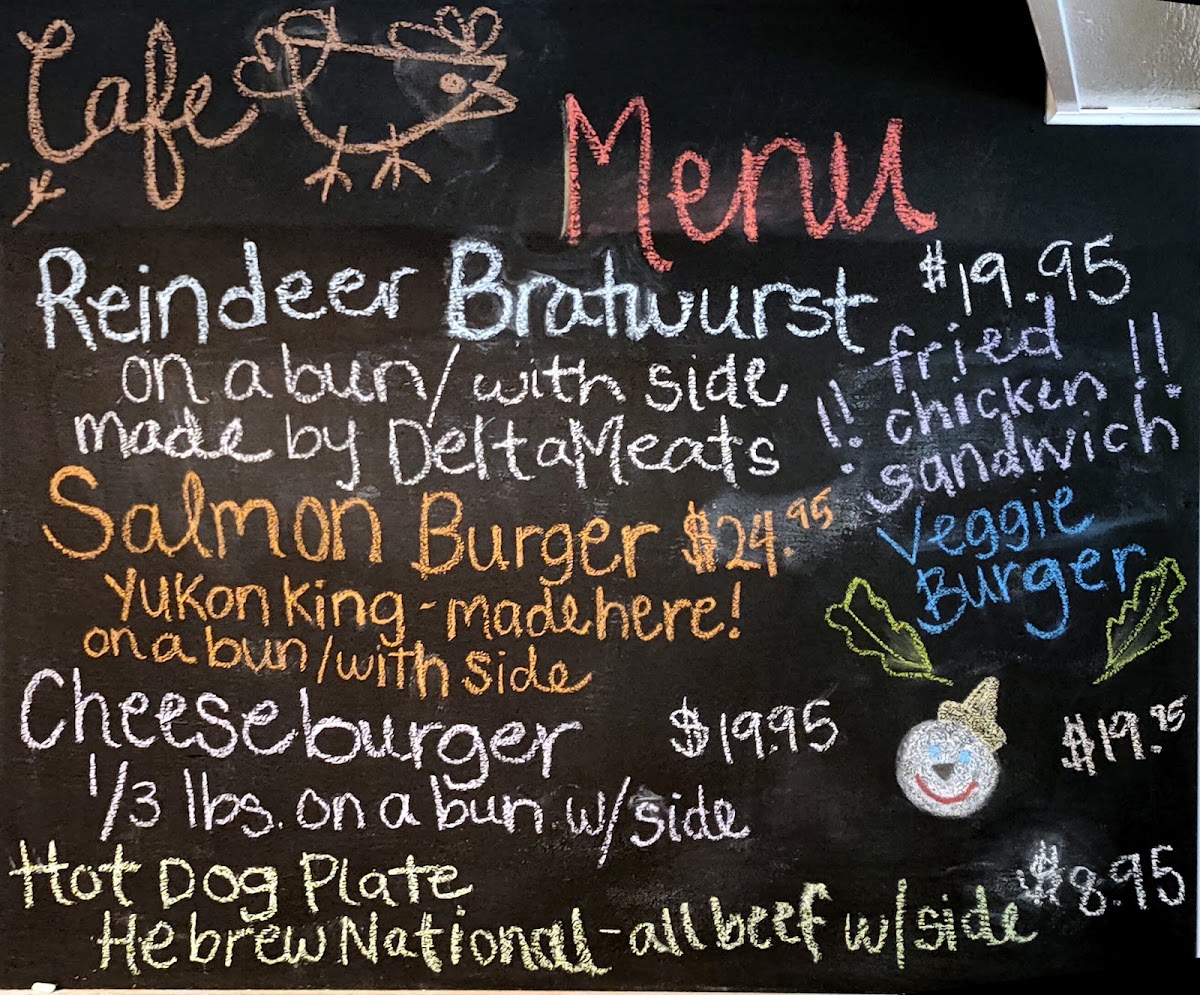 Cafe
Menu
Reindeer Bratwurst $19.95
on a bun/with side
made by DeltaMeats
!! fried chicken sandwich !!
Salmon Burger $24.95
Yukon King - made here!
on a bun/with side
Veggie
Burger
$19.95
Cheeseburger $19.95
1/3 lbs. on a bun w/side
Hot Dog Plate $8.95
Hebrew National - all beef w/side